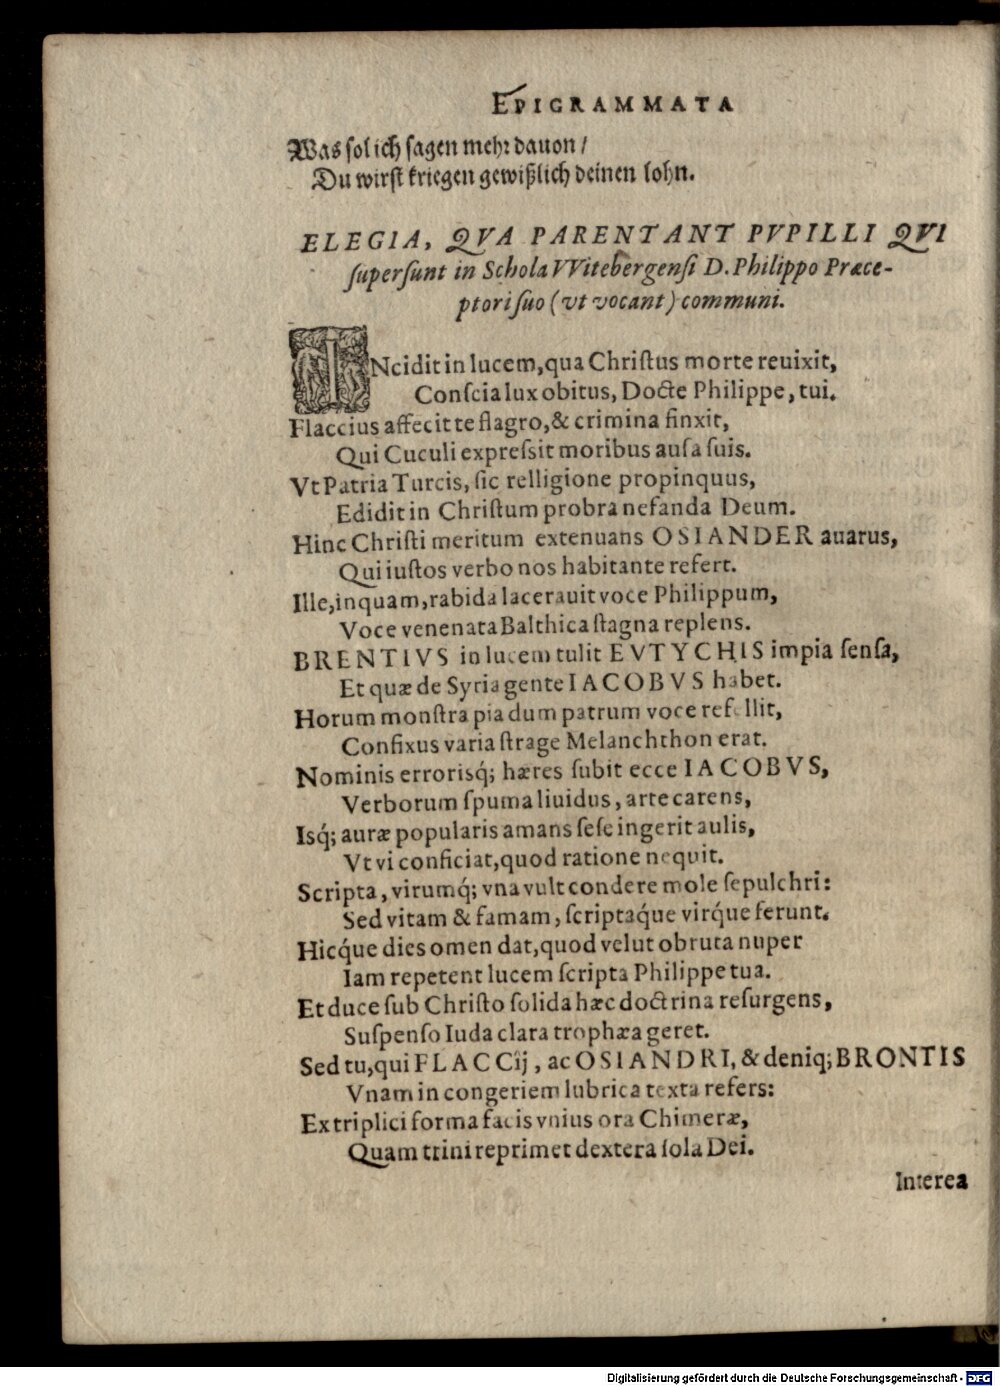 EPIGRAMMATA
Was sol ich sagen mehr dauon /
Du wirst kriegen gewißlich deinen lohn.
ELEGIA, QVA PARENTANT PVPILLI QVI
ſuperſunt in Schola VVitebergenſi D. Philippo Præce-
ptori ſuo (vt vocant) communi.
INcidit in lucem, qua Chriſtus morte reuixit,
Conſcia lux obitus, Docte Philippe, tui.
Flaccius affecit te flagro, & crimina finxit,
Qui Cuculi expreſsit moribus auſa ſuis.
Vt Patria Turcis, ſic relligione propinquus,
Edidit in Chriſtum probra nefanda Deum.
Hinc Chriſti meritum extenuans OSIANDER auarus,
Qui iuſtos verbo nos habitante refert.
Ille, inquam, rabida lacerauit voce Philippum,
Voce venenata Balthica ſtagna replens.
BRENTIVS in lucem tulit EVTYCHIS impia ſenſa,
Et quæ de Syria gente IACOBVS habet.
Horum monſtra pia dum patrum voce refellit,
Confixus varia ſtrage Melanchthon erat.
Nominis errorisq́; hæres ſubit ecce IACOBVS,
Verborum ſpuma liuidus, arte carens,
Isq́; auræ popularis amans ſeſe ingerit aulis,
Vt vi conficiat, quod ratione nequit.
Scripta, virumq́; vna vult condere mole ſepulchri:
Sed vitam & famam, ſcriptaq́ue virq́ue ferunt.
Hicq́ue dies omen dat, quod velut obruta nuper
Iam repetent lucem ſcripta Philippe tua.
Et duce ſub Chriſto ſolida hæc doctrina reſurgens,
Suſpenſo Iuda clara trophæa geret.
Sed tu, qui FLACCij, ac OSIANDRI, & deniq; BRONTIS
Vnam in congeriem lubrica texta refers:
Ex triplici forma facis vnius ora Chimeræ,
Quam trini reprimet dextera ſola Dei.
Interea
Digitalisierung gefördert durch die Deutsche Forschungsgemeinschaft - DFG